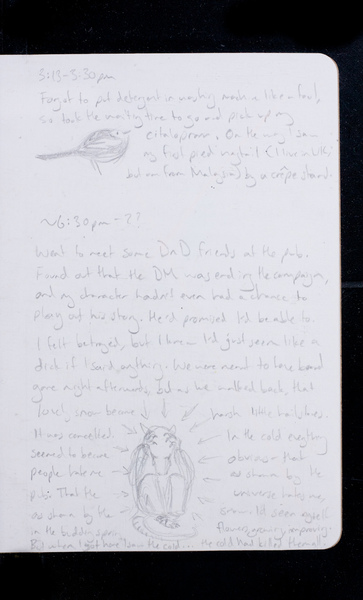 3:13-3:30pm
Forgot to put detergent in washing machine like a fool,
so took the waiting time to go and pick up my
citalopram. On the way I saw
my first pied wagtail (I live in UK
but am from Malaysia) by a crêpe stand.
~6:30pm-??
Went to meet some DnD friends at the pub.
Found out that the DM was ending the campaign,
and my character hadn't even had a chance to
play out his story. He'd promised I'd be able to.
I felt betrayed, but I knew I'd just seem like a
dick if I said anything. We were meant to have board
game night afterwards, but as we walked back, that
lovely snow became harsh little hailstones.
It was cancelled. In the cold everything
seemed to become obvious that
people hate me as shown by the
pub. That the universe hates me,
as shown by the snow. I'd seen myself
in the budding spring flowers, growing, improving.
But when I got home the cold... the cold had killed them all.